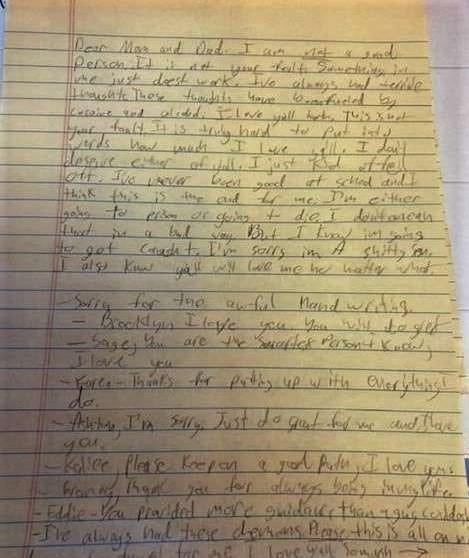 Dear Mom and Dad. I am not a good
person. It is not your fault. Something in
me just doest work. I've always had terrible
thoughts. Those thoughts have been fueled by
cocaine and alcohol. I love yall both. This is not
your fault. It is truly hard to put into
words how much I love yall. I don't
deserve either of yall. I just kind of fell
off. I've never been good at school and I
think this is the end for me. I'm either
going to prison or going to die. I dont mean
that in a bad way. But I know im going
to get caught. I'm sorry im A shitty Son.
I also know yall will love me no matter what.
- Sorry for the awful hand writing.
- Brooklyn I love you. You will do great
- Sage, You are the smartest Person I know,
I love you
- Thanks for putting up with everything I
do.
- I'm sorry. Just do great for me and I love
you.
- Please keep on a good Path, I love you
- thank you for always being in my life.
- Eddie - You provided more guidance than
- I've always had these demons. Please this is all on
for me I love yall